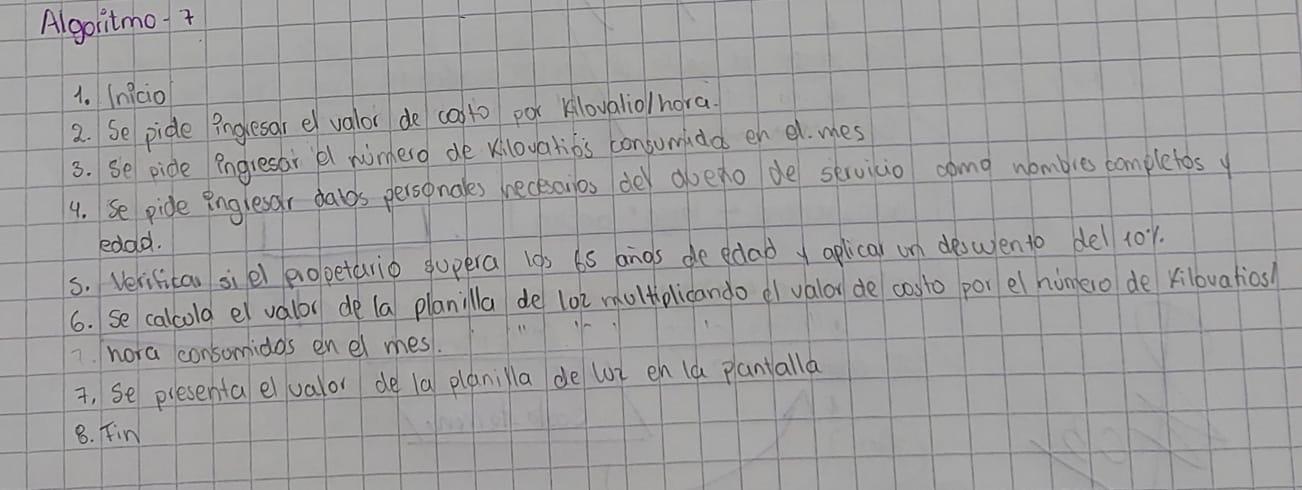 Algoritmo - 7
1. Inicio
2. Se pide ingresar el valor de costo por kilovatio/hora.
3. Se pide ingresar el número de kilovatios consumidos en el mes
4. Se pide ingresar datos personales necesarios del dueño de servicio como nombres completos y
edad.
5. Verificar si el propetario supera los 65 años de edad y aplicar un descuento del 10%.
6. Se calcula el valor de la planilla de luz multiplicando el valor de costo por el número de kilovatios/
hora consumidos en el mes.
7. Se presenta el valor de la planilla de luz en la pantalla
8. Fin